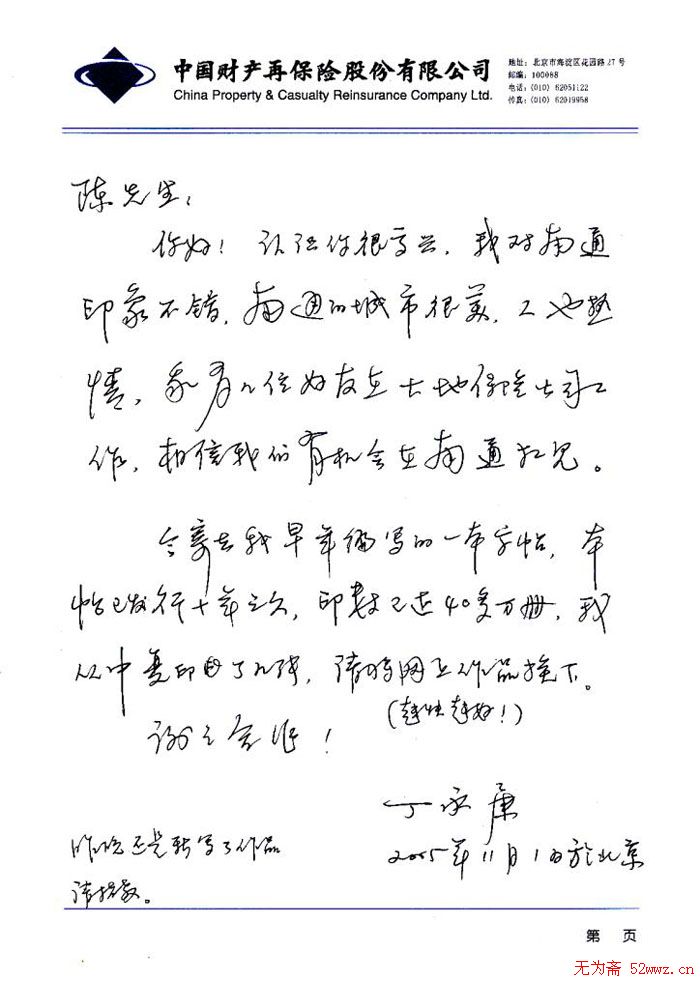 中国财产再保险股份有限公司
China Property & Casualty Reinsurance Company Ltd.
地址: 北京市海淀区花园路27号
邮编: 100088
电话: (010) 62051122
传真: (010) 62019958
陈先生:
你好! 认识你很高兴, 我对南通
印象不错, 南通的城市很美, 人也热
情, 我有几位好友在大地保险公司工
作, 相信我们有机会在南通相见。
今寄去我早年编写的一本字帖, 本
帖已发行十年之久, 印数已达40多万册, 我
从中复印了几张, 请将网上作品换下。
(越快越好!)
谢谢合作!
丁永康
2005年11月1日于北京
昨晚还是新写了作品
请指教。
第 页
无为斋 52wwz.cn